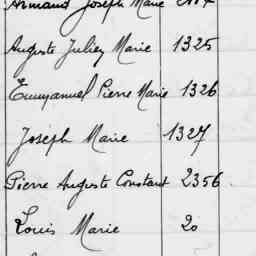 Armand Joseph Marie
Auguste Julien Marie 1325
Emmanuel Pierre Marie 1326
Joseph Marie 1327
Pierre Auguste Constant 2356
Louis Marie 20